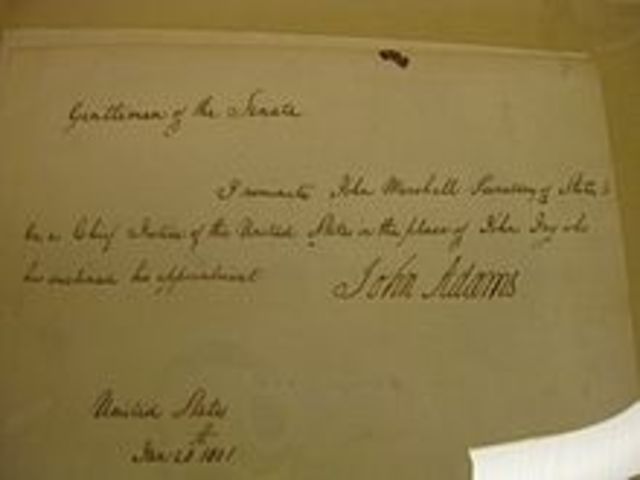 Gentlemen of the Senate
I nominate John Marshall Secretary of State to
be a Chief Justice of the United States in the place of John Jay who
has declined his appointment
John Adams
United States
Jan 20th 1801